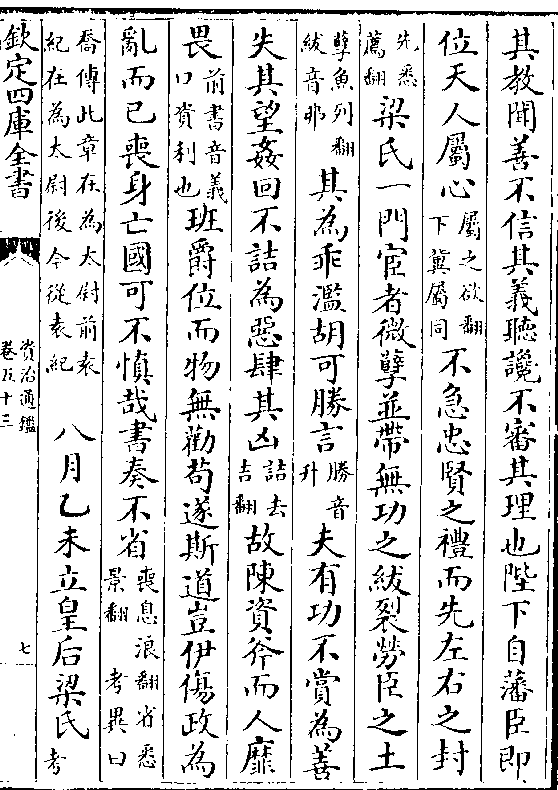 其教聞善不信其義聽讒不審其理也陛下自藩臣即
位天人屬心屬之欲翻下冀屬同不急忠賢之禮而先左右之封
先悉薦翻梁氏一門宦者微孽並帶無功之紱裂勞臣之土
孽魚列翻紱音弗其為乖濫胡可勝言勝音升夫有功不賞為善
失其望姦回不詰為惡肆其凶詰去吉翻故陳資斧而人靡
畏前書音義口資利也班爵位而物無勸苟遂斯道豈伊傷政為
亂而已喪身亡國可不慎哉書奏不省喪息浪翻省悉景翻考異曰
喬傳此章在為太尉前袁紀在為太尉後今從袁紀八月乙未立皇后梁氏考
欽定四庫全書
資治通鑑
卷五十三
七